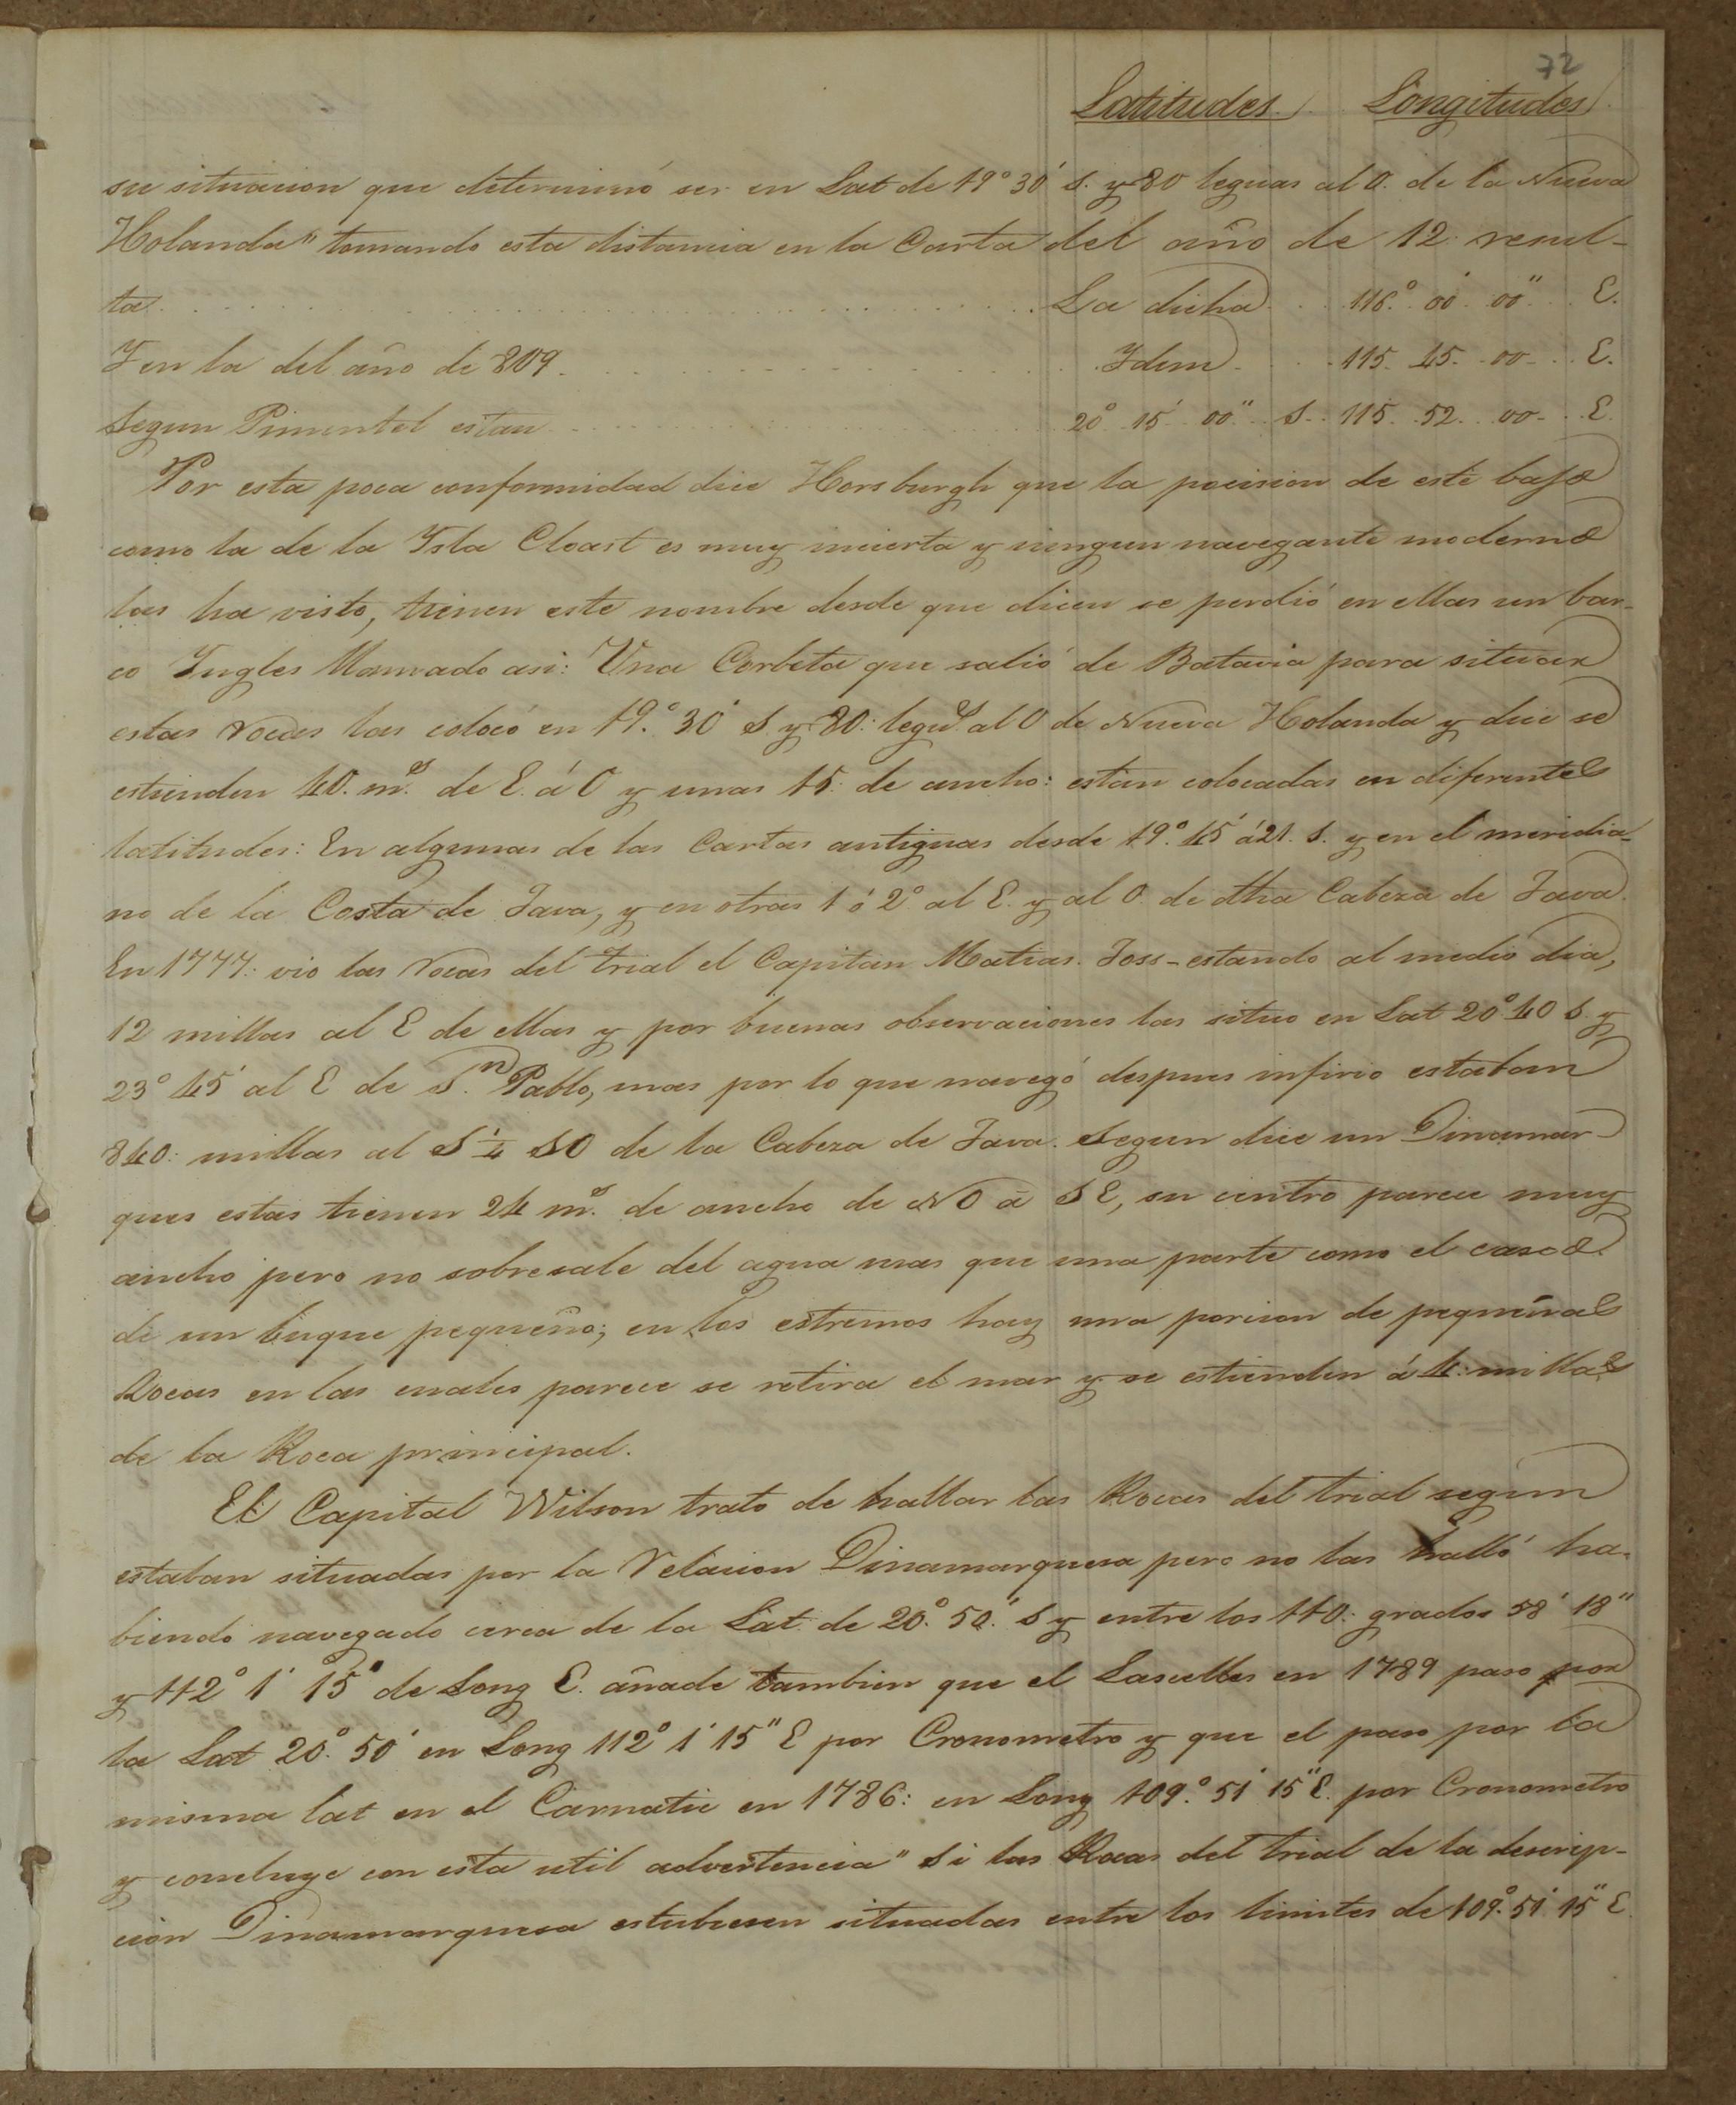 72
Latitudes. Longitudes
su situacion que determinó ser en Lat de 19° 30' S. y 80 leguas al O. de la Nueva
Holanda" tomando esta distancia en la Carta del año de 12: resul-
ta . . . . . La dicha . . 116.° 00' 00" . . E.
Y en la del año de 809 . . . . . Idem . . 115. 45. 00 . . E.
Segun Pimentel estan . . . . . 20° 15' 00" . . S. . 115. 52. 00 . . E.
Por esta poca conformidad dice Horsburgh que la pocision de este bajo
como la de la Ysla Cloast es muy incierta y ningun navegante moderno
las ha visto, tienen este nombre desde que dicen se perdió en ellas un bar-
co Ingles llamado asi: Una Corbeta que salió de Batavia para situar
estas rocas las colocó en 19.° 30' S. y 80: legu.s al O de Nueva Holanda y dice se
estienden 40. m.s de E. á O y unas 15. de ancho: estan colocadas en diferentes
latitudes: En algunas de las Cartas antiguas desde 19.° 45' á 21. S. y en el meridia-
no de la Costa de Java, y en otras 1 ó 2° al E. y al O. de dha Cabeza de Java.
En 1777: vio las rocas del trial el Capitan Matias. Foss - estando al medio dia,
12 millas al E de ellas y por buenas observaciones las situo en Lat 20° 40 S. y
23° 45' al E de S.n Pablo, mas por lo que navegó despues infirio estaban
840: millas al S ¼ SO de la Cabeza de Java. Segun dice un Dinamar-
ques estas tienen 24 m.s de ancho de NO á SE, su centro parece muy
ancho pero no sobresale del agua mas que una parte como el casco
de un buque pequeño; en los estremos hay una porcion de pequeñas
Rocas en las cuales parece se retira el mar y se estienden á 4: millas
de la Roca principal.
El Capital Wilson trato de hallar las Rocas del trial segun
estaban situadas por la relacion Dinamarquesa pero no las halló ha-
biendo navegado cerca de la Lat. de 20.° 50.' S y entre los 110: grados 58' 18"
y 112° 1' 15" de Long E. añade tambien que el Lascelles en 1789 paso por
la Lat 20.° 50' en Long 112° 1' 15" E por Cronometro y que el paso por la
misma lat en el Carnatic en 1786: en Long 109.° 51' 15" E. por Cronometro
y concluye con esta util advertencia" Si las Rocas del trial de la descrip-
cion Dinamarquesa estubiesen situadas entre los limites de 109.° 51' 15" E